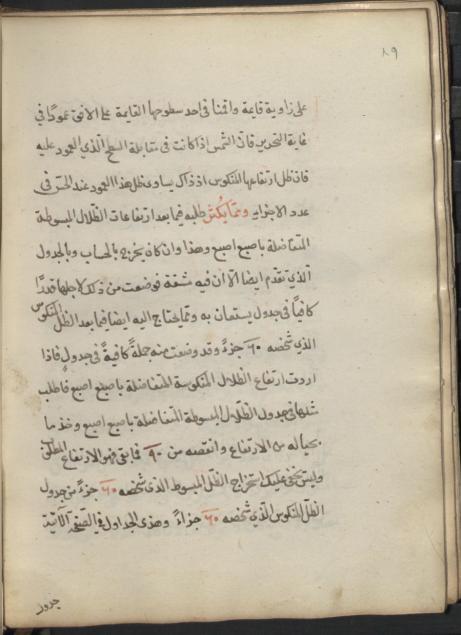 ٨٩
على زاوية قايمة واثبتنا في احد سطوحها القايمة على الافق عمودًا في
غاية التحرير فان الشمس اذا كانت في مقابلة السطح الذي العمود عليه
فان ظل ارتفاعها المنكوس اذ ذاك يساوى ظل هذا العمود عند الحس في
عدد الاجزاء ومما يكثر طلبه فيما بعد ارتفاعات الظلال المبسوطة
المتفاضلة باصبع اصبع وهذا وان كان يخرج بالحساب وبالجدول
الذي تقدم ايضا الا ان فيه مشقة فوضعت من ذلك لاجلها قدرًا
كافيًا في جدول يستعان به ومما يحتاج اليه ايضا فيما بعد الظل المنكوس
الذي شخصه ٦٠ جزءً وقد وضعت منه جملةً كافيةً في جدول فاذا
اردت ارتفاع الظلال المنكوسة المتفاضلة باصبع اصبع فاطلب
مثلها في جدول الظلال المبسوطة المتفاضلة باصبع اصبع وخذ ما
بحياله من الارتفاع وانقصه من ٩٠ فما بقى فهو الارتفاع المطلوب
وليس يخفى عليك استخراج الظل المبسوط الذي شخصه ٦٠ جزءً من جدول
الظل المنكوس الذي شخصه ٦٠ جزاءً وهذى الجداول في الصفحة الآتية
جدول